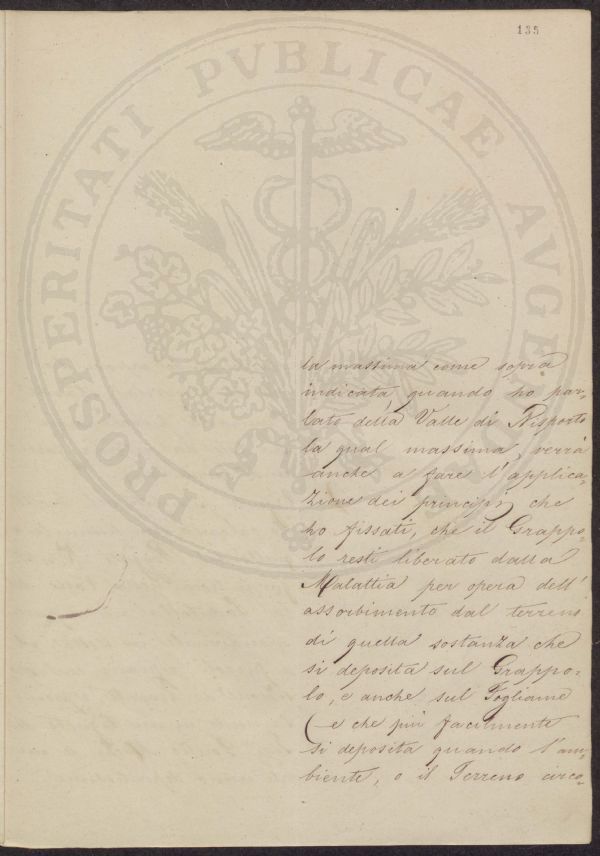 135
PROSPERITATI PVBLICAE AVGENDAE
la massima come sopra
indicata, quando ho par„
lato della Valle di Risposto
la qual massima, verrà
anche a fare l'applica„
zione dei principj che
ho fissati, che il Grappo„
lo resti liberato dalla
Malattia per opera dell'
assorbimento dal terreno
di quella sostanza che
si deposita sul Grappo„
lo, e anche sul Fogliame
(e che più facilmente
si deposita quando l'am„
biente, o il Terreno circo„